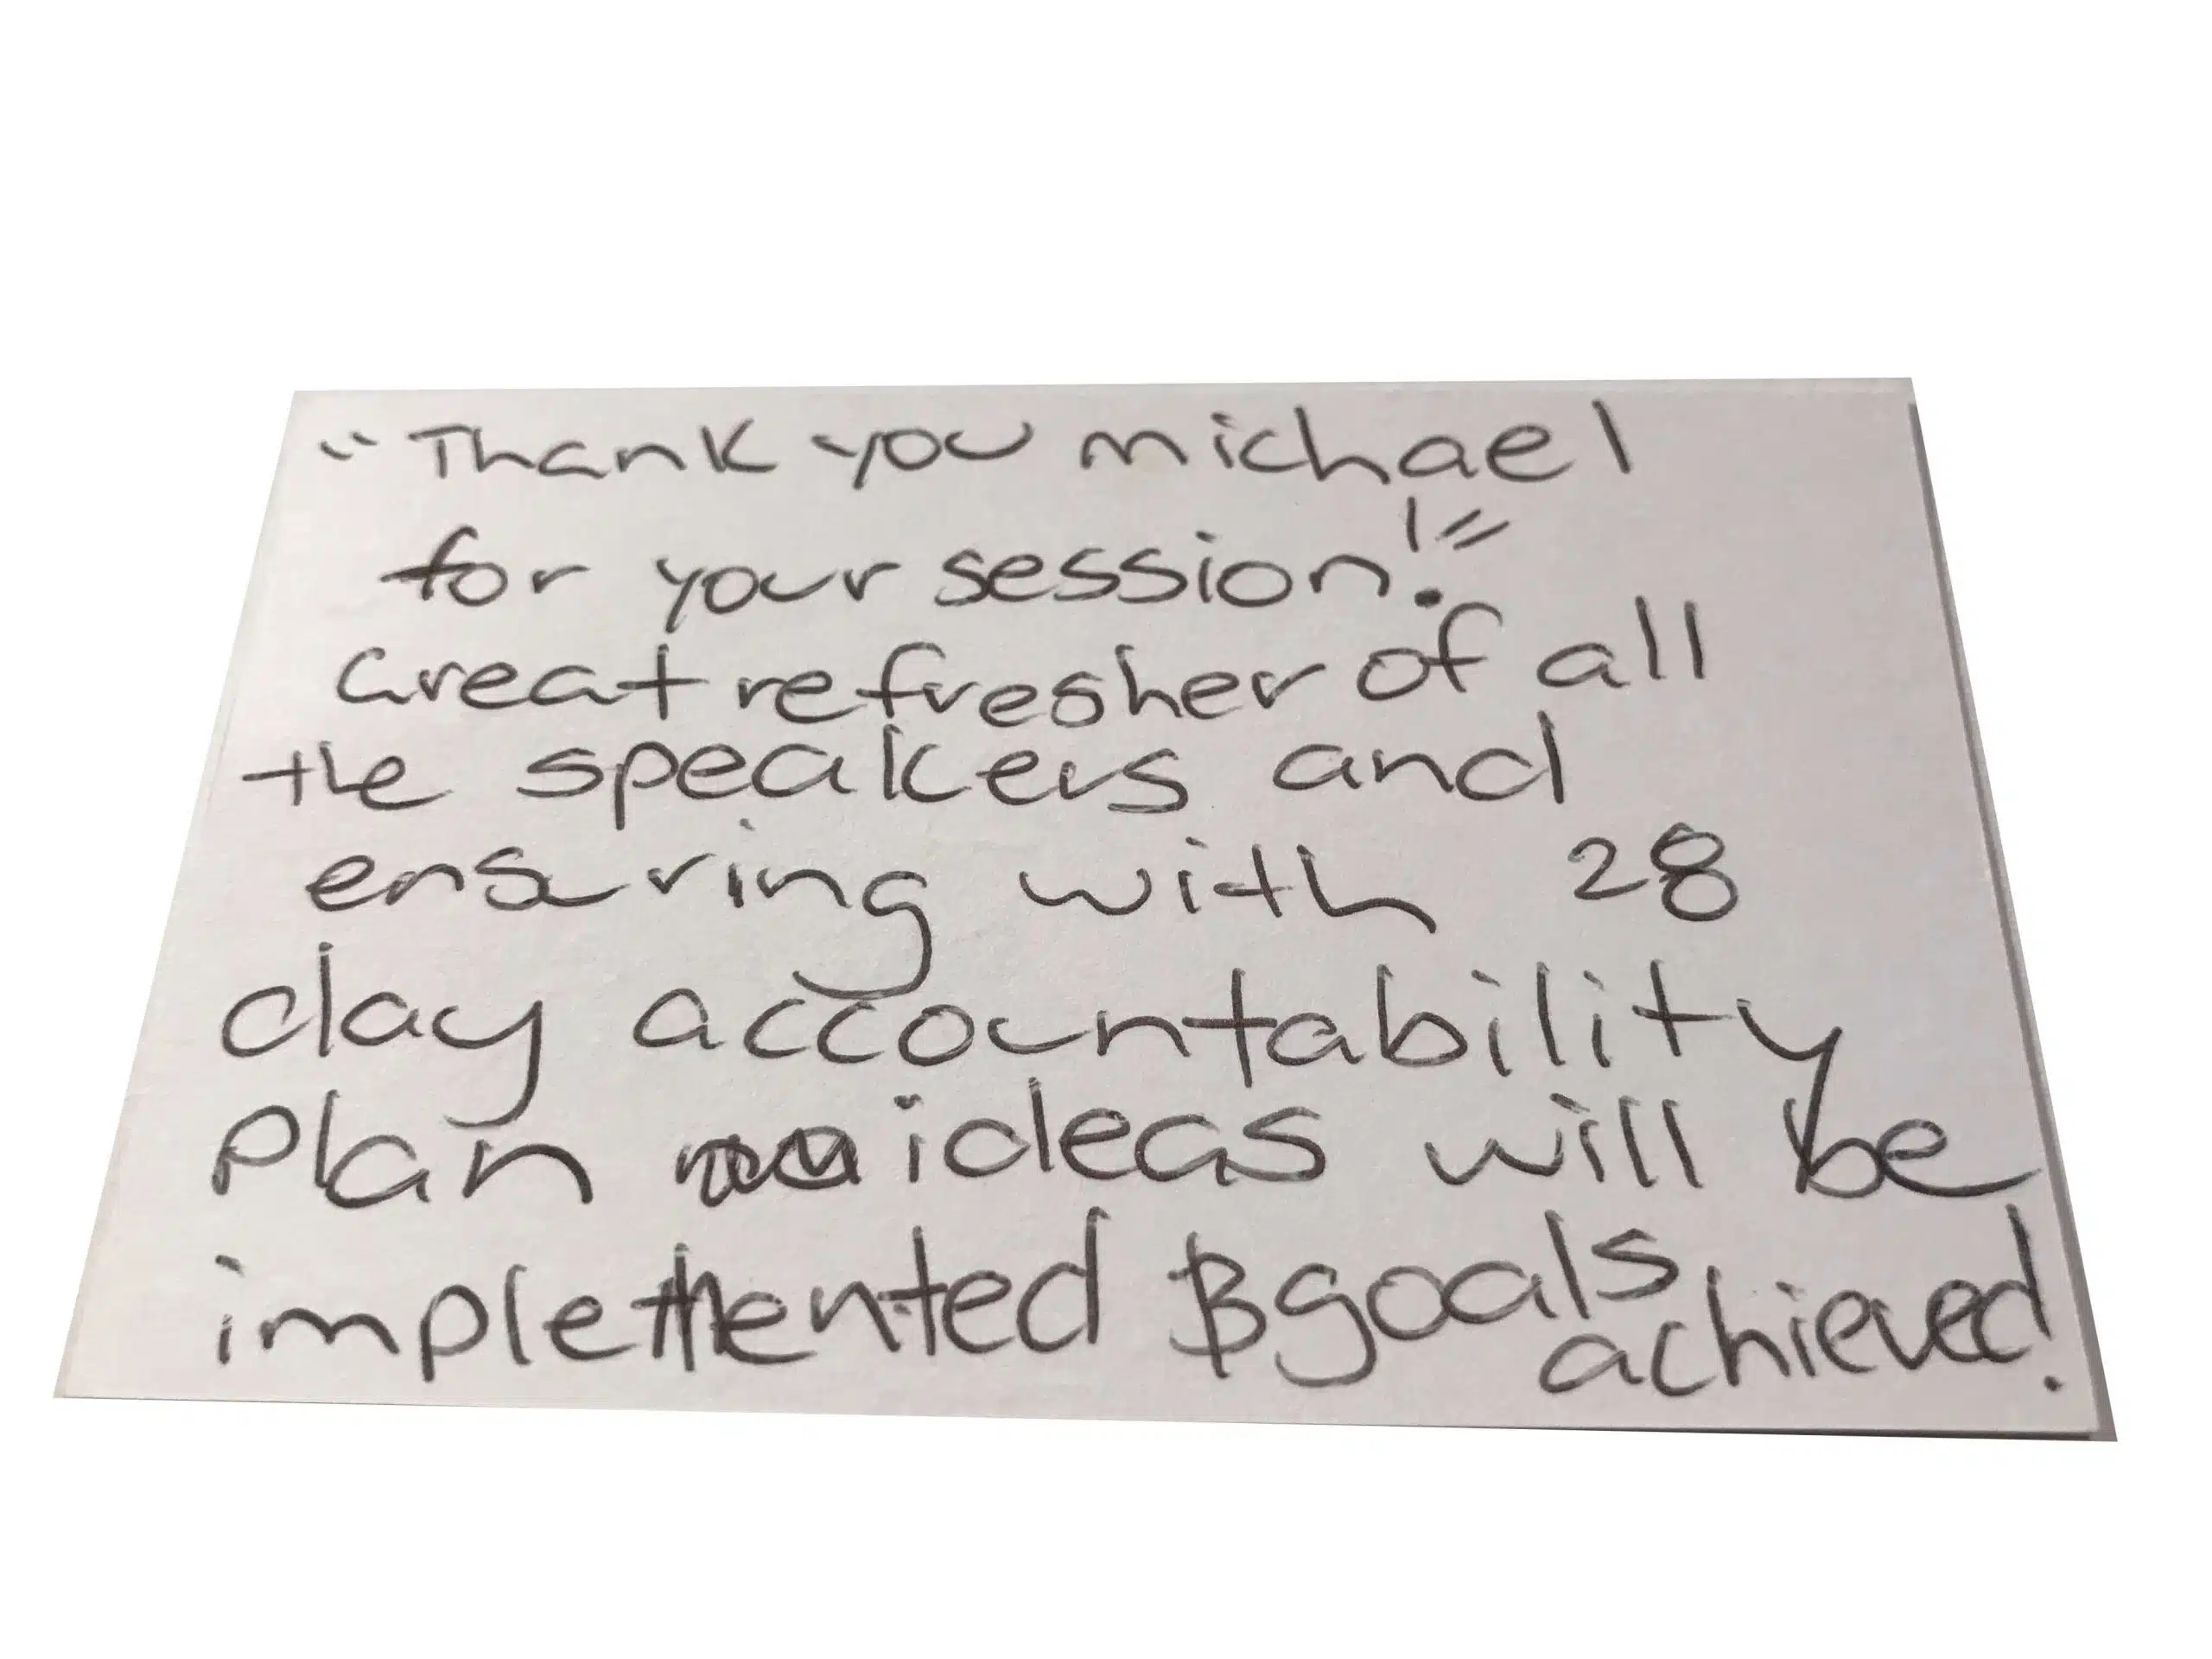 "Thank you michael
for your session!"
Great refresher of all
the speakers and
ensuring with 28
day accountability
Plan ideas will be
implemented & goals
achieved!